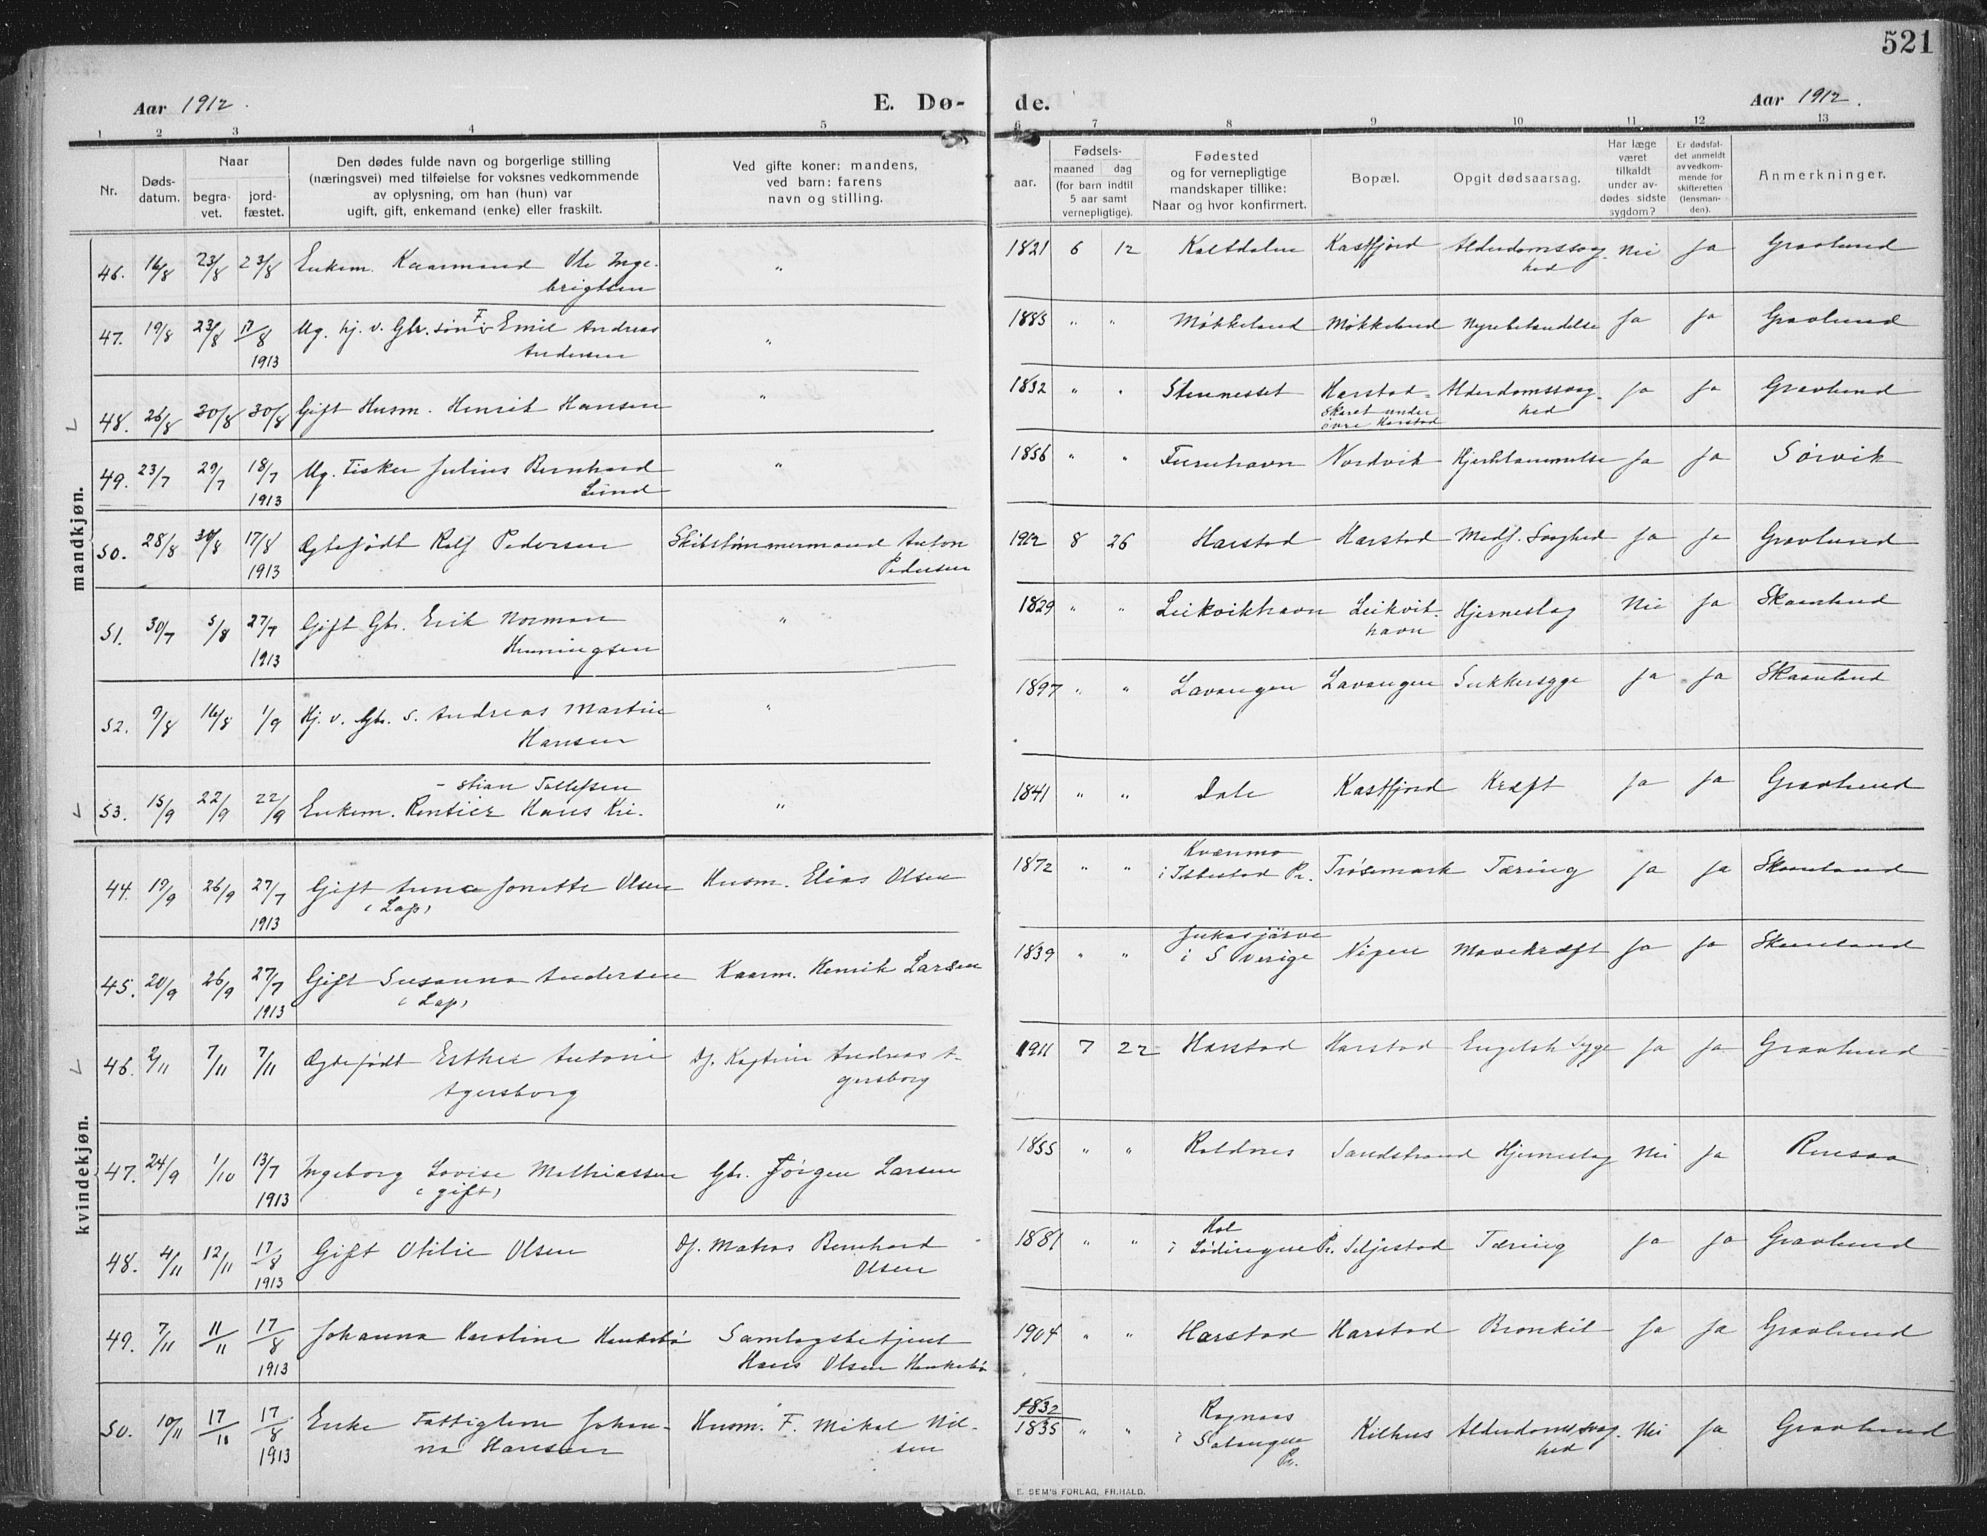 521
Aar 1912. E. Dø- de. Aar 1912.
1 2 3 4 5 6 7 8 9 10 11 12 13
Nr.
Døds-
datum.
Naar
begra-
vet.
jord-
fæstet.
Den dødes fulde navn og borgerlige stilling
(næringsvei) med tilføielse for voksnes vedkommende
av oplysning, om han (hun) var
ugift, gift, enkemand (enke) eller fraskilt.
Ved gifte koner: mandens,
ved barn: farens
navn og stilling.
Fødsels-
aar.
maaned dag
(for barn indtil
5 aar samt
vernepligtige).
Fødested
og for vernepligtige
mandskaper tillike:
Naar og hvor konfirmert.
Bopæl.
Opgit dødsaarsag.
Har læge
været
tilkaldt
under av-
dødes sidste
sygdom?
Er dødsfal-
det anmeldt
av vedkom-
mende for
skifteretten
(lensman-
den).
Anmerkninger.
mandkjøn.
46. 16/8 23/8 23/8 Enkem. Kaarmand Ole Inge- " 1821 6 12 Kaltdalen Kastfjord Alderdomssvag- Nei Ja Gravlund
brigtsen hed
47. 19/8 23/8 17/8 Ug. hj. v. Gbr. søn F. Emil Andreas " 1885 " " Møkkeland Møkkeland Nyrebetændelse Ja Ja Gravlund
1913 Andersen
48. 26/8 30/8 30/8 Gift Husm. Henrik Hansen " 1832 " " Stennesset Harstad- Alderdomssvag- Ja Ja Gravlund
Skaret under hed
øvre Harstad
49. 23/7 29/7 18/7 Ug. Fisker Julius Bernhard " 1856 " " Furuhavn Nordvik Hjertelammelse Ja Ja Sørvik
1913 Lund
50. 28/8 30/8 17/8 Ægtefødt Rolf Pedersen Skibstømmermand Anton 1912 8 26 Harstad Harstad Medf. Svaghed Ja Ja Gravlund
1913 Pedersen
51. 30/7 5/8 27/7 Gift Gbr. Erik Norman " 1829 " " Leikvikhavn Leikvik- Hjerneslag Nei Ja Skaanland
1913 Henningsen havn
52. 9/8 16/8 1/9 Hj. v. Gbr. s. Andreas Martin " 1897 " " Lavangen Lavangen Sukkersyge Ja Ja Skaanland
Hansen
- stian Tollefsen
53. 15/9 22/9 22/9 Enkem. Rentier Hans Kri- " 1841 " " Dale Kastfjord Kræft Ja Ja Gravlund
kvindekjøn.
Kvænmo
44. 19/9 26/9 27/7 Gift Anne Jonette Olsen Husm. Elias Olsen 1872 " " i Ibbestad Pr. Trøsemark Tæring Ja Ja Skaanland
1913 (Lap)
Jukasjärve
45. 20/9 26/9 27/7 Gift Susanna Andersen Kaarm. Henrik Larsen 1839 " " i Sverige Nipen Mavekræft Ja Ja Skaanland
1913 (Lap)
46. 2/11 7/11 7/11 Ægtefødt Esther Antonie Df. Kaptein Andreas A- 1911 7 22 Harstad Harstad Engelsk Syge Ja Ja Gravlund
Agersborg gersborg
47. 24/9 1/10 13/7 Ingeborg Lovise Mathiassen Gbr. Jørgen Larsen 1855 " " Roldnes Sandstrand Hjerneslag Nei Ja Rensaa
1913 (gift)
Hol
48. 4/11 12/11 17/8 Gift Otilie Olsen Df. Matros Bernhard 1881 " " i Lødingen Pr. Seljestad Tæring Ja Ja Gravlund
1913 Olsen
49. 7/11 11/11 17/8 Johanna Karoline Henkebø Samlagsbetjent 1904 " " Harstad Harstad Bronkit Ja Ja Gravlund
1913 Hans Olsen Henkebø
1832
50. 10/11 17/11 17/8 Enke Fattiglem Johan- Husm. F. Mikal Nil- 1835 " " Ragnaas Kilhus Alderdomssvag- Nei Ja Gravlund
1913 na Hansen sen i Salangen hed
Pr.
E. SEM'S FORLAG, FR.HALD.